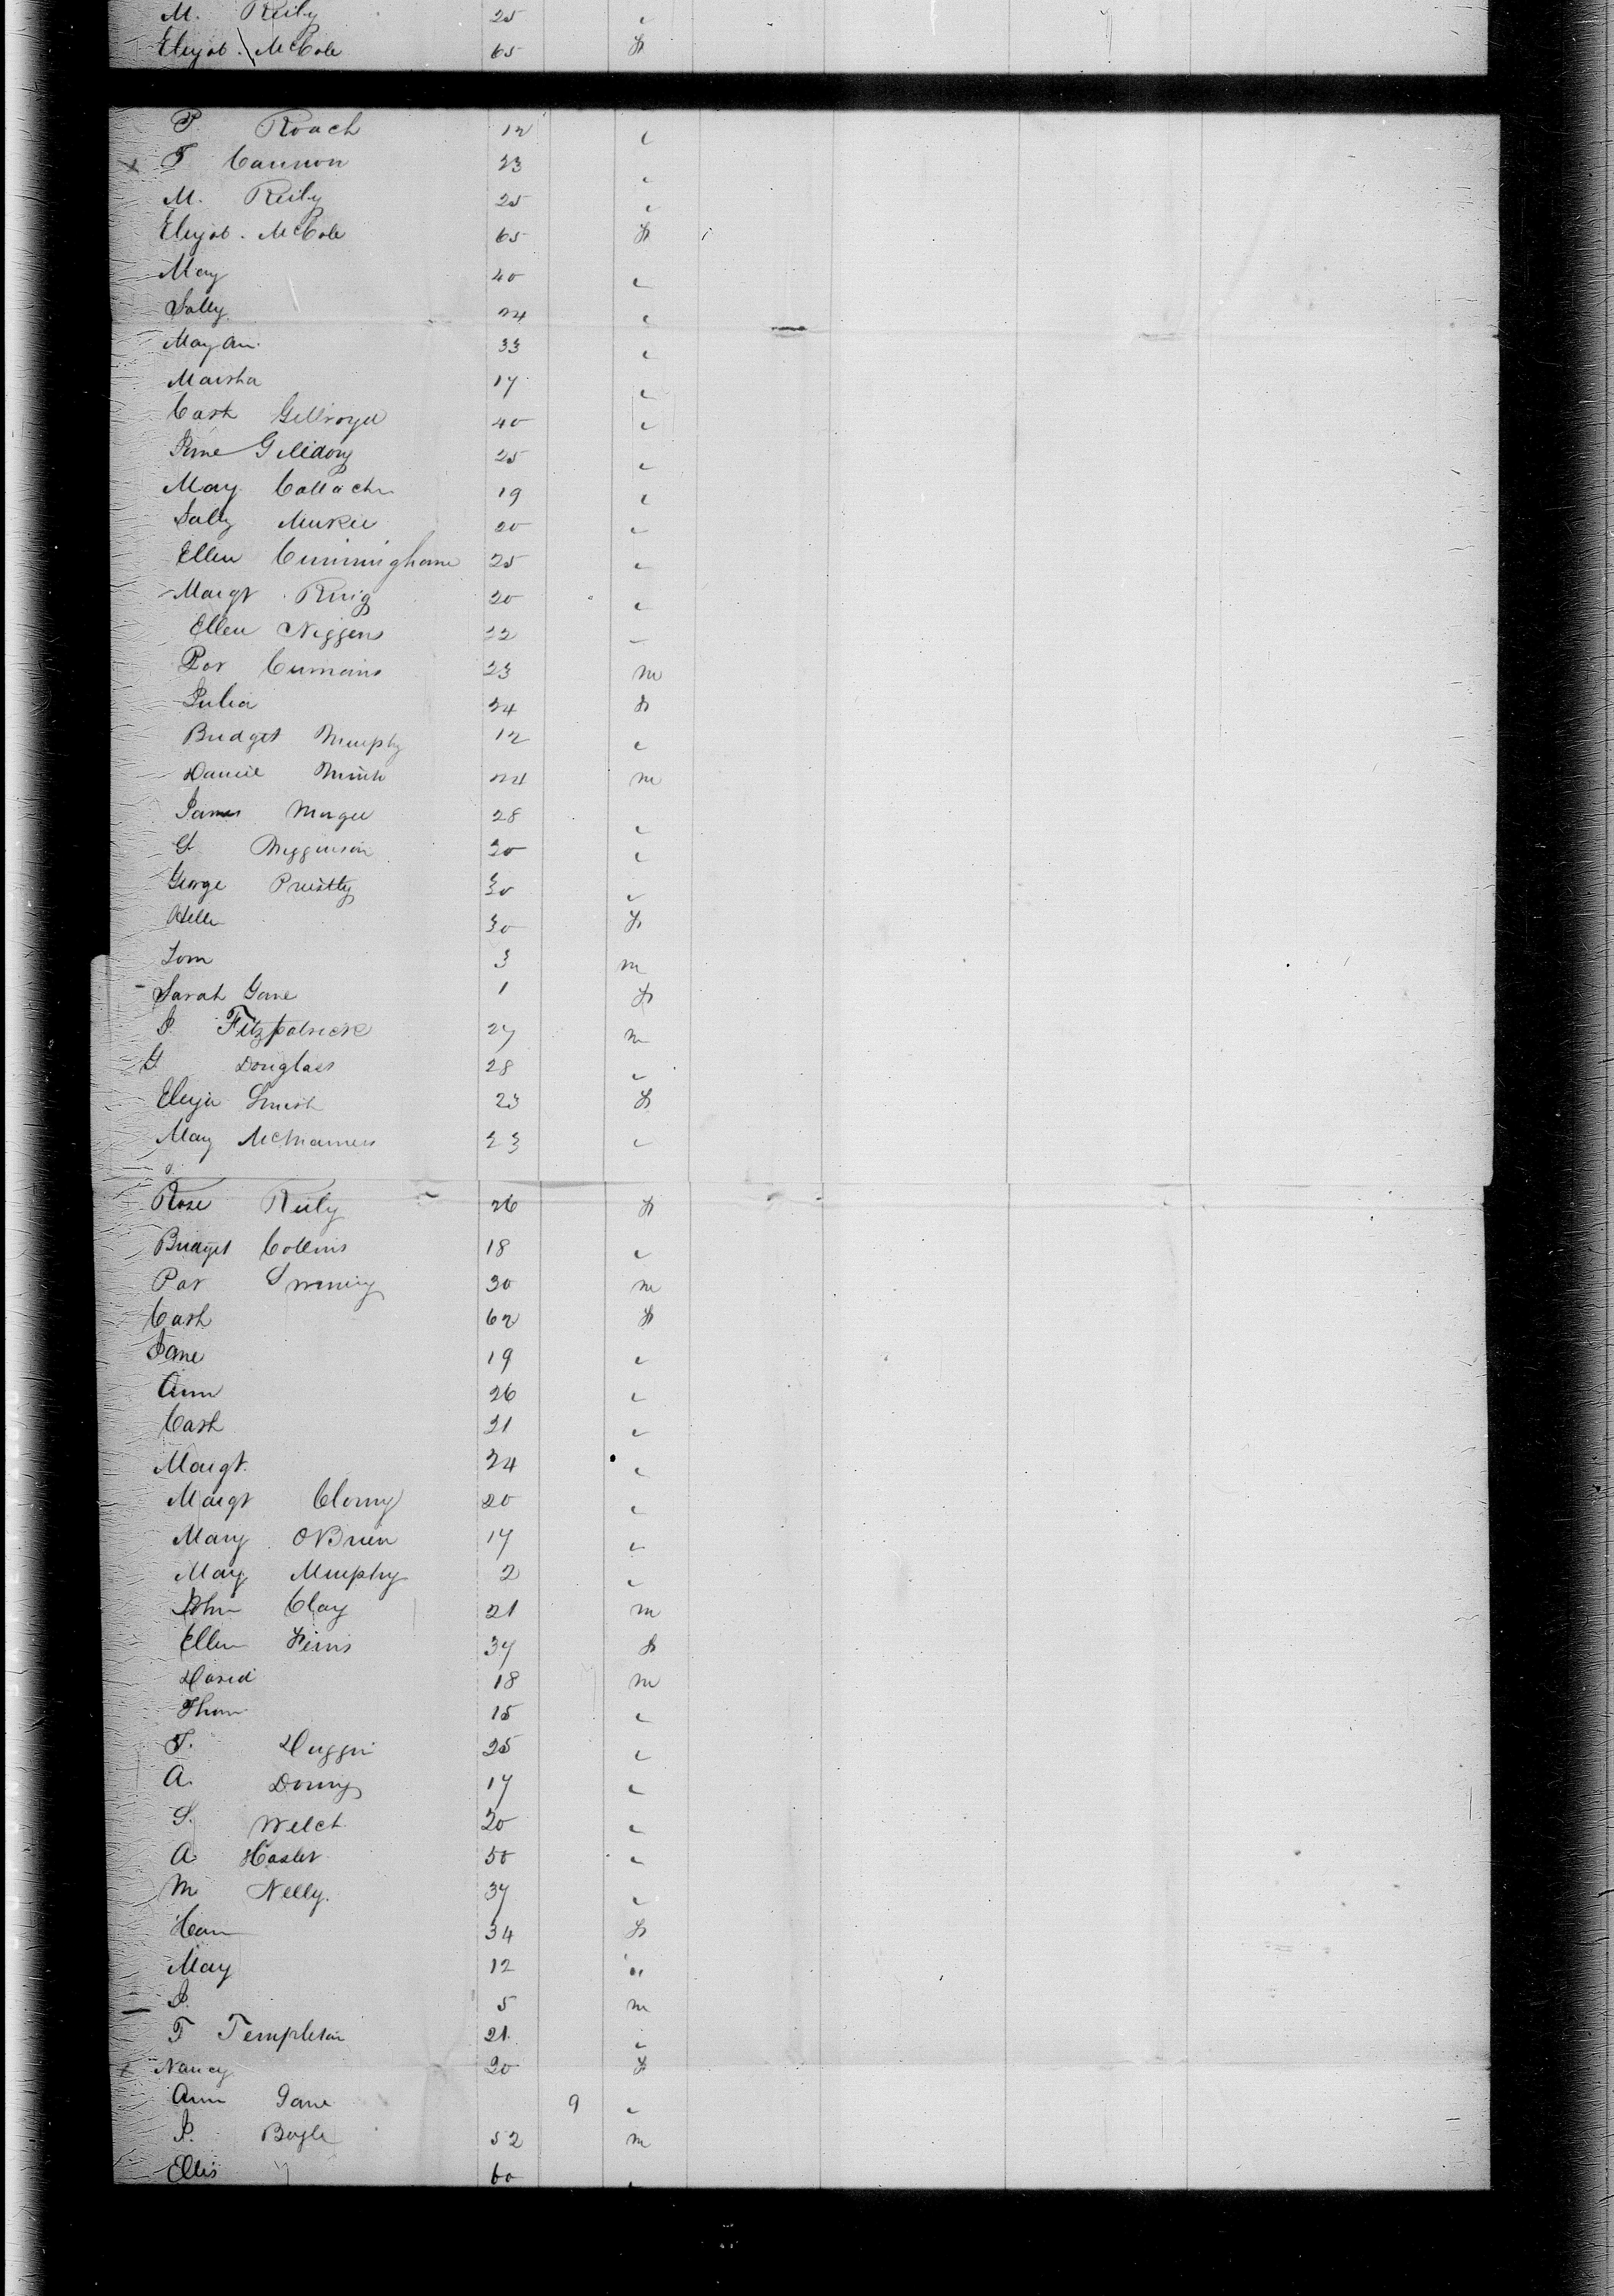 M. Reily 25 "
Elizab. McCole 65 f
P. Roach 12 "
x T Cannon 23 "
M. Reily 25 "
Elizab. McCole 65 f
May 40 "
Sally 24 "
May Ann 33 "
Marsha 17 "
Cath Gillroyd 40 "
Jane 25 "
May 19 "
Sally 20 "
Ellen Cunninghame 25 "
Margt 20 "
Ellen Niggens 22 "
Pat Cummins 23 m
Julia 24 f
Bridget Murphy 12 "
Daniel 24 m
James Magee 28 "
G. 20 "
George Priestly 30 "
30 f
Tom 3 m
Sarah Jane 1 f
P. Fitzpatrick 27 m
G Douglass 28 "
Eliza Smith 23 f
May 23 "
Rose Reily 26 f
Bridget Collins 18 "
Pat 30 m
Cath 62 f
Jane 19 "
Ann 26 "
Cath 21 "
Margt. 24 "
Margt 20 "
Mary OBrien 17 "
May Murphy 2 "
John Clay 21 m
Ellen 37 f
David 18 m
Thom 15 "
T. Duggin 25 "
A. 17 "
S. Welch 20 "
A. Haslet 50 "
M Nelly. 37 "
34 f
May 12 "
J. 5 m
T Templeton 21 "
x Nancy 20 f
Ann Jane 9 "
P. Boyle 52 m
Ellis 60 "